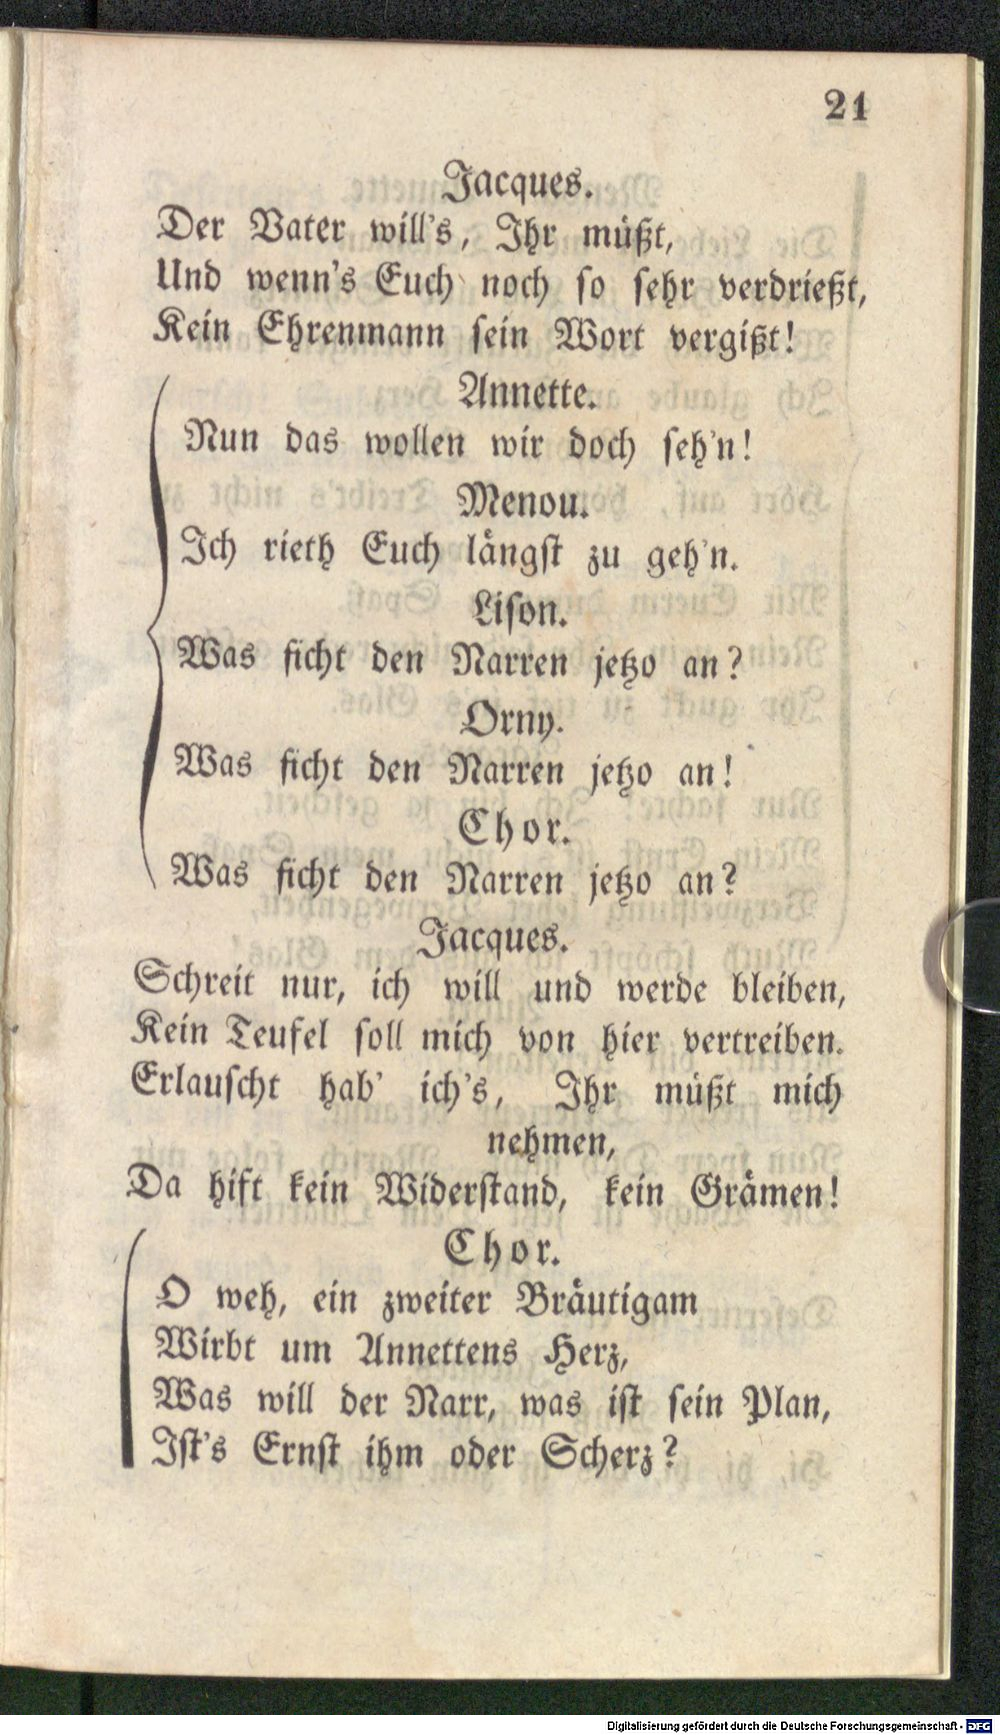 21
Jacques.
Der Vater will's, Ihr müßt,
Und wenn's Euch noch so sehr verdrießt,
Kein Ehrenmann sein Wort vergißt!
Annette.
Nun das wollen wir doch seh'n!
Menou.
Ich rieth Euch längst zu geh'n.
Lison.
Was ficht den Narren jetzo an?
Orny.
Was ficht den Narren jetzo an!
Chor.
Was ficht den Narren jetzo an?
Jacques.
Schreit nur, ich will und werde bleiben,
Kein Teufel soll mich von hier vertreiben.
Erlauscht hab' ich's, Ihr müßt mich
nehmen,
Da hift kein Widerstand, kein Grämen!
Chor.
O weh, ein zweiter Bräutigam
Wirbt um Annettens Herz,
Was will der Narr, was ist sein Plan,
Ist's Ernst ihm oder Scherz?
Digitalisierung gefördert durch die Deutsche Forschungsgemeinschaft - DFG